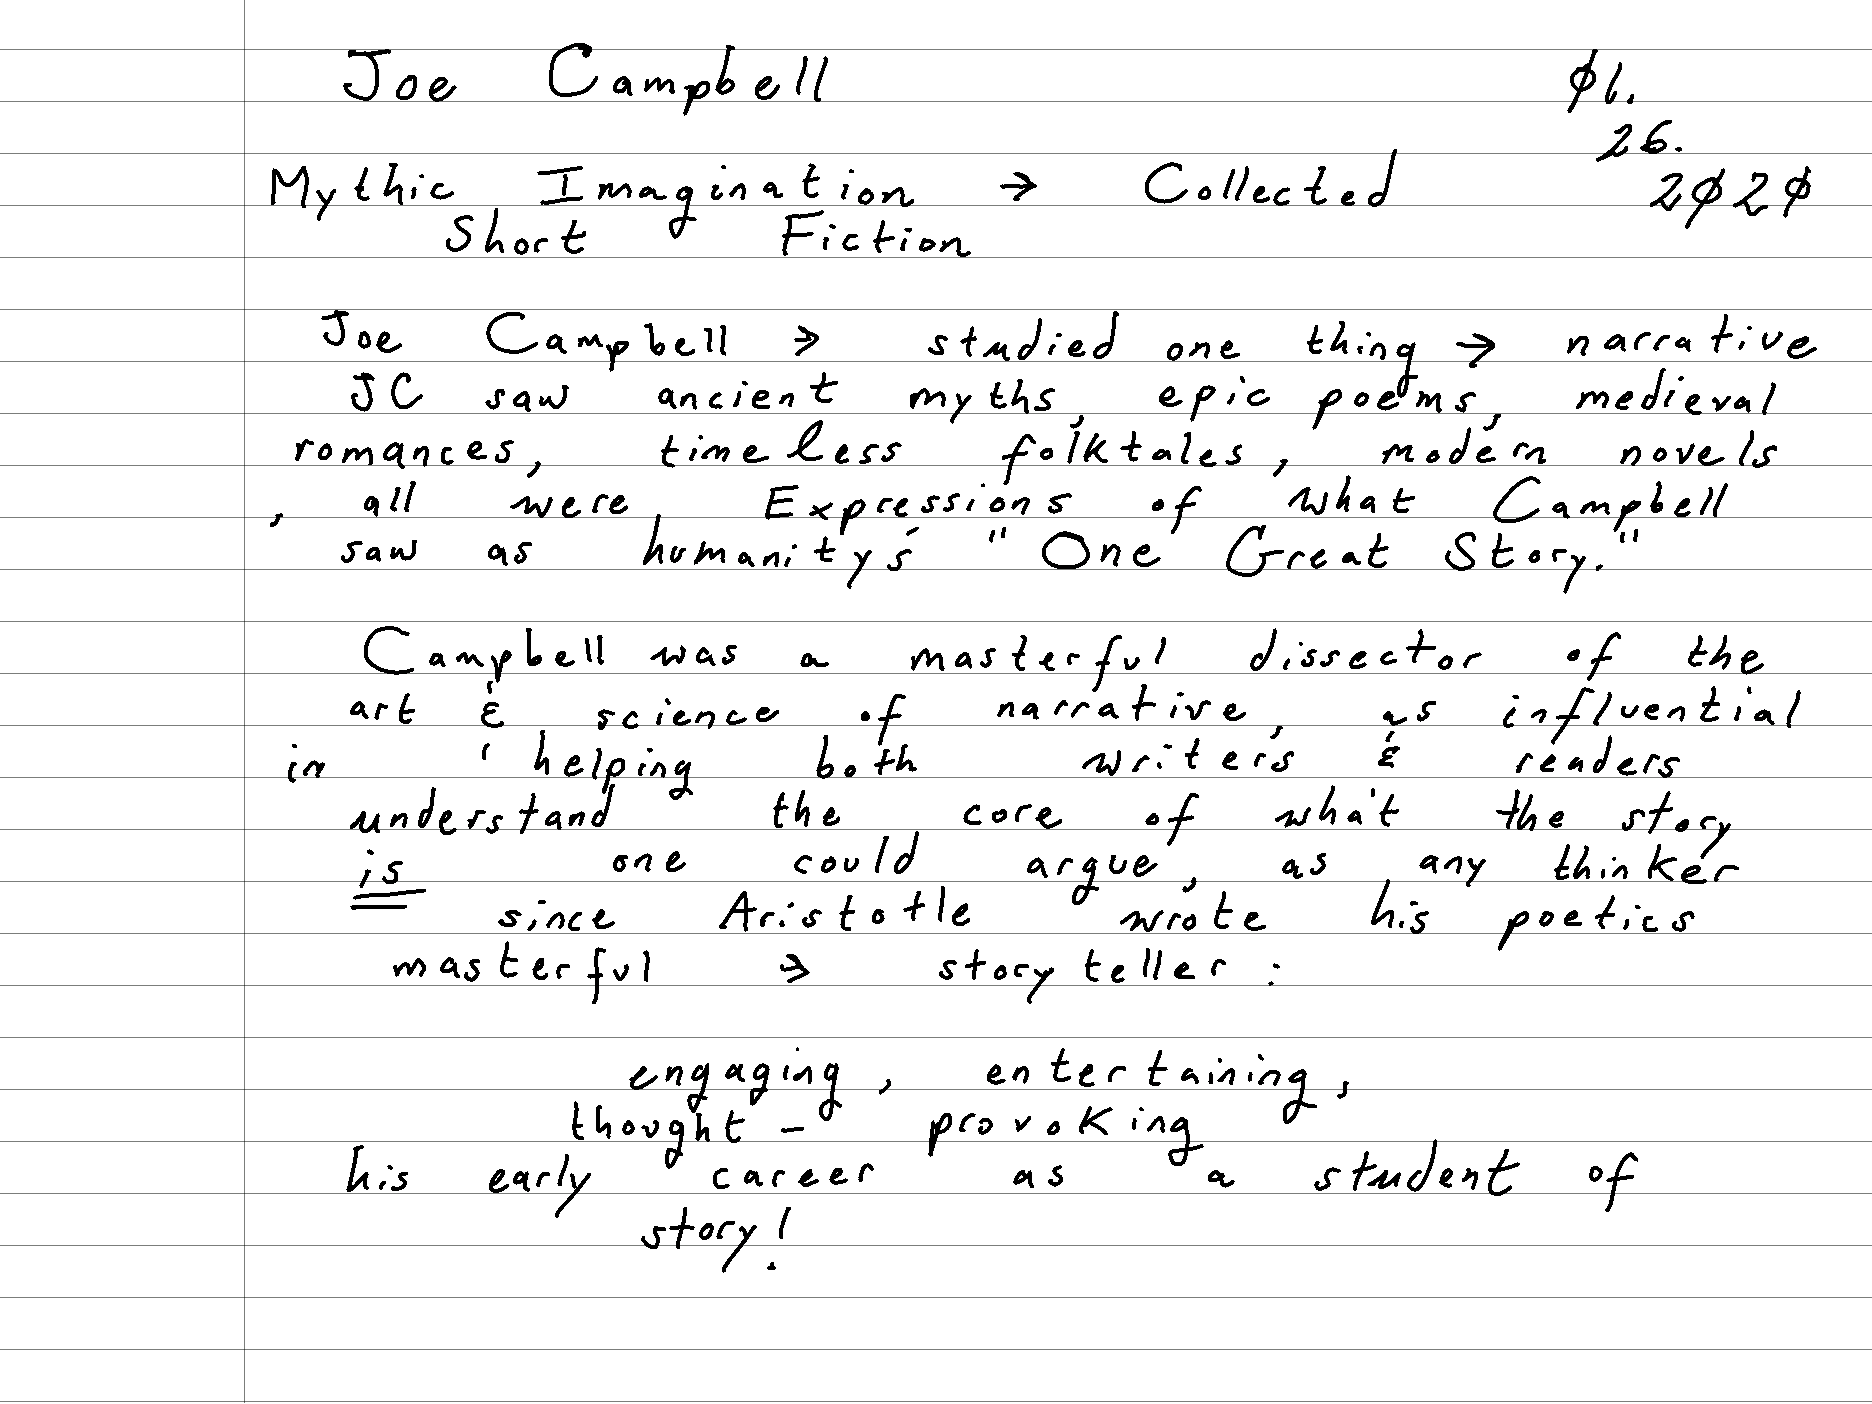 Joe Campbell
01.
26.
2020
Mythic Imagination → Collected
Short Fiction
Joe Campbell → studied one thing → narrative
JC saw ancient myths, epic poems, medieval
romances, timeless folktales, modern novels
, all were, Expressions of what Campbell
saw as humanity's "One Great Story."
Campbell was a masterful dissector of the
art & science of narrative, as influential
in helping both writers & readers
understand the core of what the story
is one could argue, as any thinker
since Aristotle wrote his poetics
masterful → story teller :
engaging, entertaining,
thought - provoking
his early career as a student of
story!